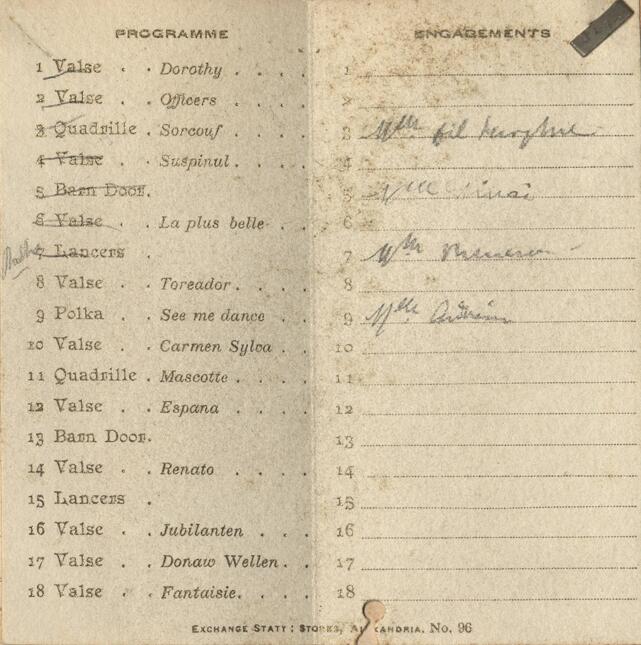 PROGRAMME
1 Valse . . Dorothy . . . .
2 Valse . . Officers . . . .
3 Quadrille . Sorcouf . . . .
4 Valse . . Suspinul . . . .
5 Barn Door.
6 Valse . . La plus belle . .
7 Lancers .
8 Valse . . Toreador . . . .
9 Polka . . See me dance . .
10 Valse . . Carmen Sylva . .
11 Quadrille . Mascotte . . . .
12 Valse . . Espana . . . .
13 Barn Door.
14 Valse . . Renato . . . .
15 Lancers .
16 Valse . . Jubilanten . . .
17 Valse . . Donaw Wellen . .
18 Valse . . Fantaisie. . . .
ENGAGEMENTS
1
2
3
4
5 Mlle
6
7
8
9 Mlle
10
11
12
13
14
15
16
17
18
EXCHANGE STATY: STORES, ALEXANDRIA, No. 96